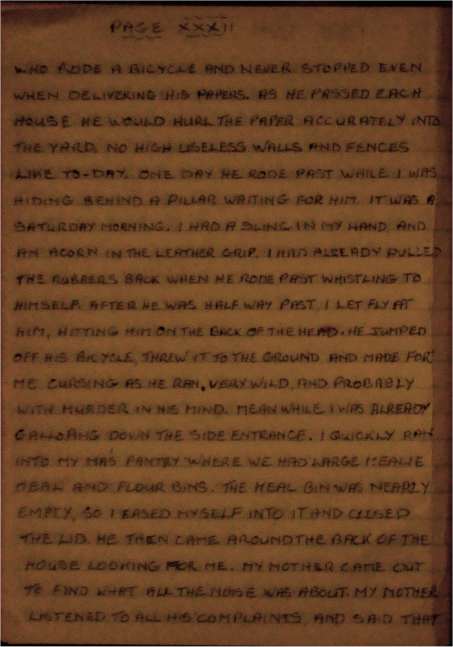 PAGE XXXII
WHO RODE A BICYCLE AND NEVER STOPPED EVEN
WHEN DELIVERING HIS PAPERS. AS HE PASSED EACH
HOUSE HE WOULD HURL THE PAPER ACCURATELY INTO
THE YARD. NO HIGH USELESS WALLS AND FENCES
LIKE TO-DAY. ONE DAY HE RODE PAST WHILE I WAS
HIDING BEHIND A PILLAR WAITING FOR HIM. IT WAS A
SATURDAY MORNING. I HAD A SLING IN MY HAND, AND
AN ACORN IN THE LEATHER GRIP. I HAD ALREADY PULLED
THE RUBBERS BACK WHEN HE RODE PAST WHISTLING TO
HIMSELF. AFTER HE WAS HALF WAY PAST, I LET FLY AT
HIM, HITTING HIM ON THE BACK OF THE HEAD. HE JUMPED
OFF HIS BICYCLE, THREW IT TO THE GROUND AND MADE FOR
ME CURSING AS HE RAN, VERY WILD, AND PROBABLY
WITH MURDER IN HIS MIND. MEANWHILE I WAS ALREADY
GALLOPING DOWN THE SIDE ENTRANCE. I QUICKLY RAN
INTO MY MA'S PANTRY WHERE WE HAD LARGE MEALIE
MEAL AND FLOUR BINS. THE MEAL BIN WAS NEARLY
EMPTY, SO I EASED MYSELF INTO IT AND CLOSED
THE LID. HE THEN CAME AROUND THE BACK OF THE
HOUSE LOOKING FOR ME. MY MOTHER CAME OUT
TO FIND WHAT ALL THE NOISE WAS ABOUT. MY MOTHER
LISTENED TO ALL HIS COMPLAINTS, AND SAID THAT